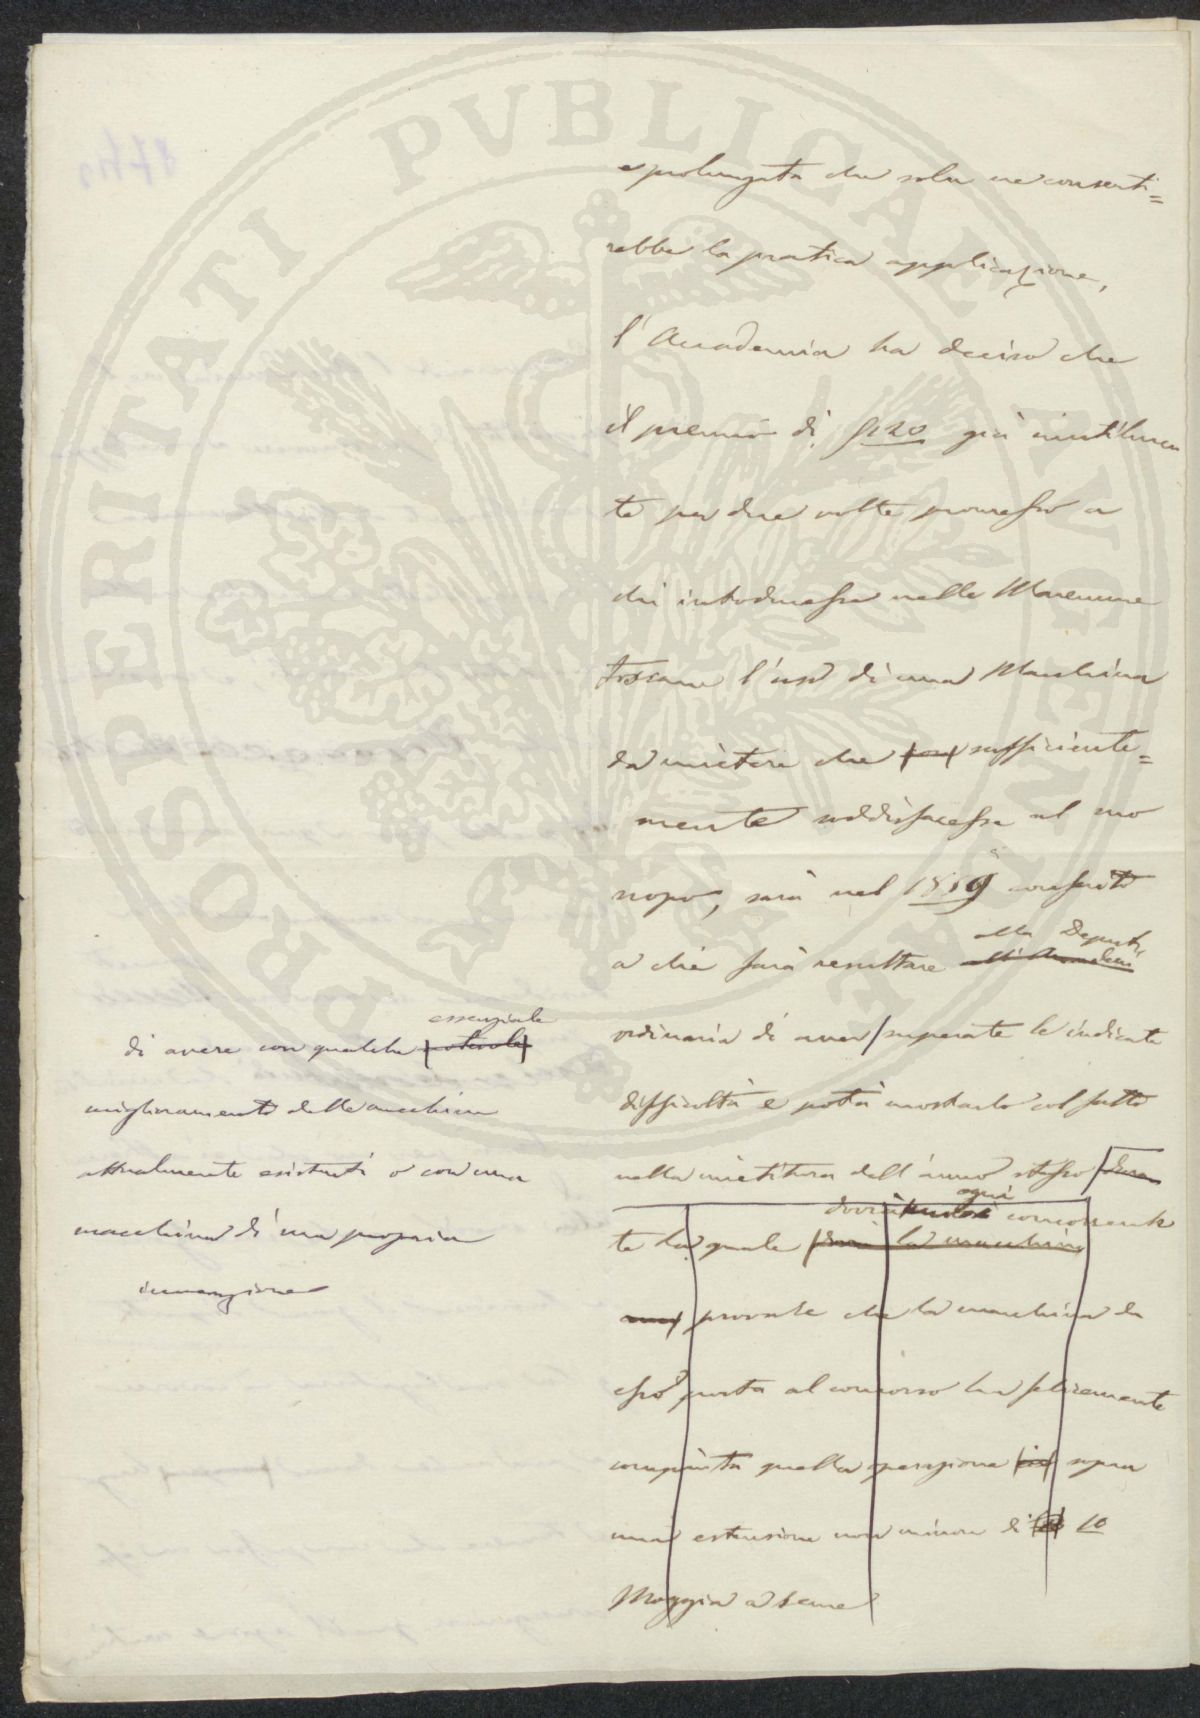 PROSPERITATI PVBLICAE AVGENDAE
e prolungata che sola ne consenti=
rebbe la pratica applicazione,
l'Accademia ha deciso che
il premio di già inutilmen
te per due volte promesso a
chi introducesse nelle Maremme
toscane l'uso di una Macchina
da mietere che sufficiente=
mente soddisfacesse al suo
scopo, sarà nel 1859 conferito
alla Deput.
a chi farà resultare all'Accademia
ordinaria di aver/superate le indicate
difficoltà e potrà mostrarlo col fatto
nella mietitura dell'anno stesso
dovrà ogni concorrente
te la quale sarà la macchina
provare che la macchina da
esso posta al concorso ha felicemente
compiuta quella operazione sopra
una estensione non minore di 10
Moggia a seme
essenziale
di avere con qualche notevole
miglioramento delle macchine
attualmente esistenti o con una
macchina di sua propria
invenzione